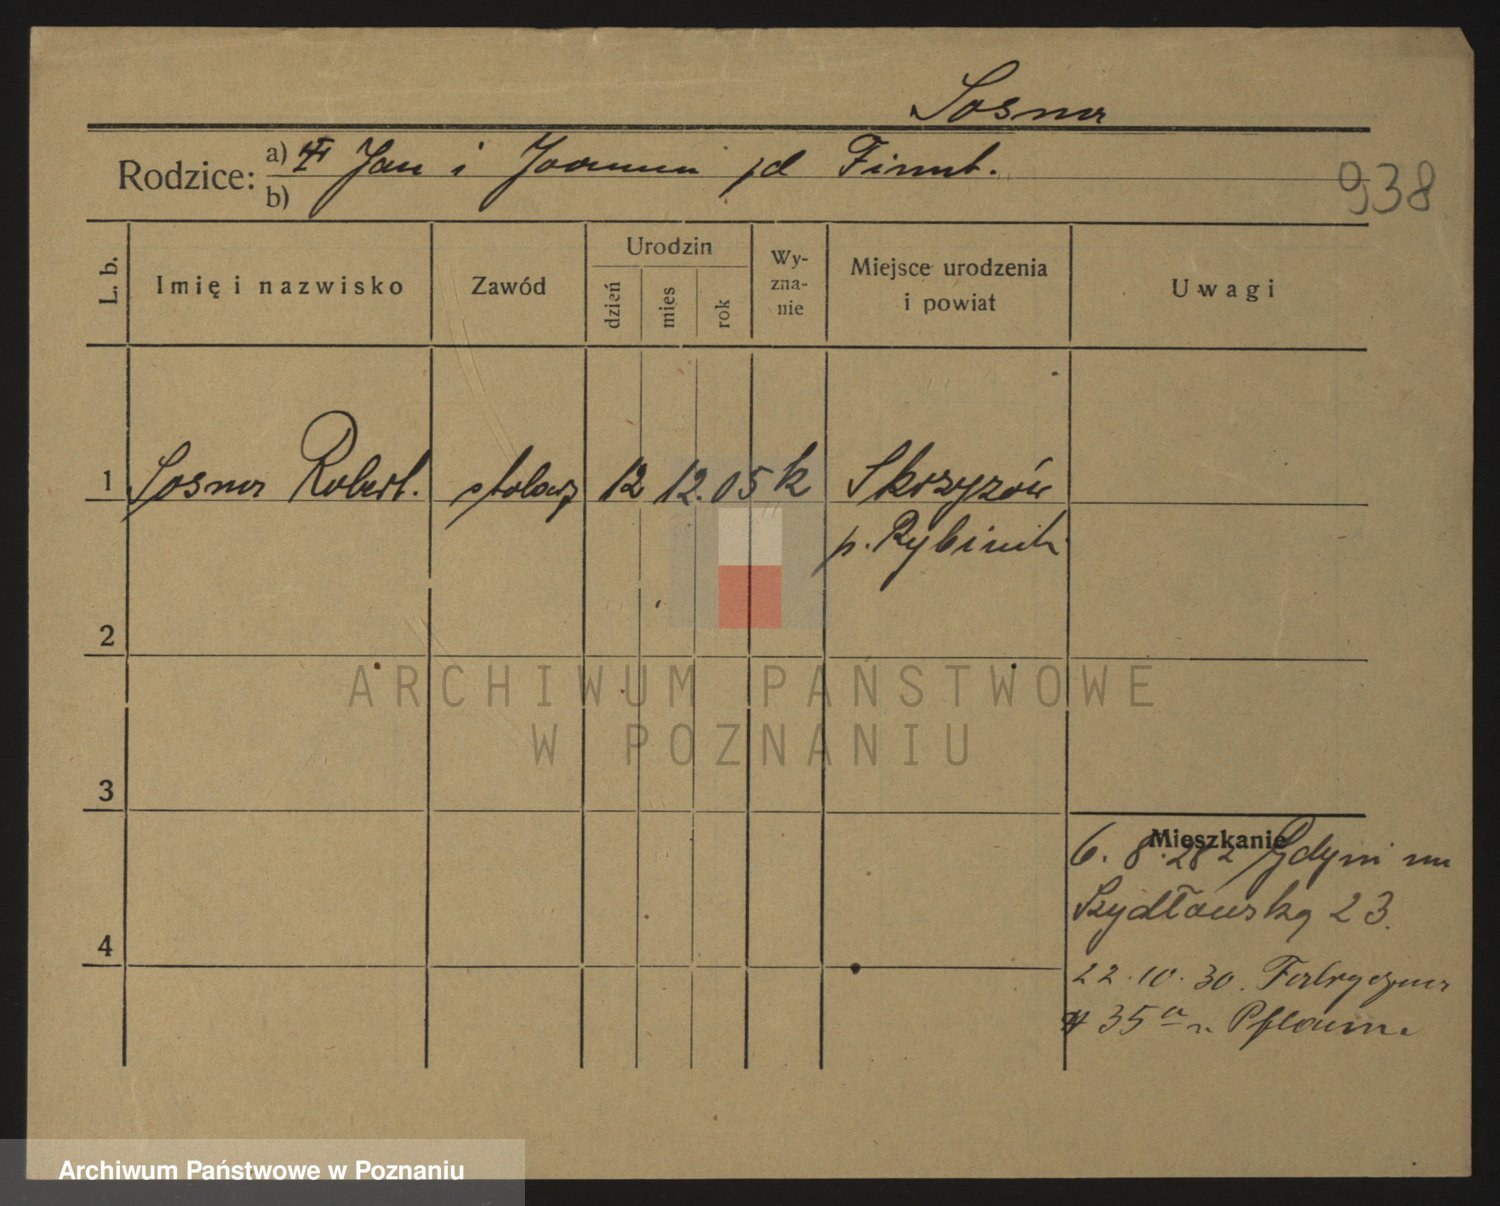 Sosna
Rodzice: a) Jan i Joanna
b)
938
L. b.
Imię i nazwisko
Zawód
Urodzin
dzień
mies
rok
Wy-
zna-
nie
Miejsce urodzenia
i powiat
Uwagi
1 Sosna Robert. stolarz 12 12. 05 k Skrzyzów
p. Rybinik
2
ARCHIWUM PAŃSTWOWE
W POZNANIU
3
Mieszkanie
6. 8. 28 z Gdyni
Szydłowska 23.
4
22. 10. 30. Fabryczna
35a Pflaum.
Archiwum Państwowe w Poznaniu